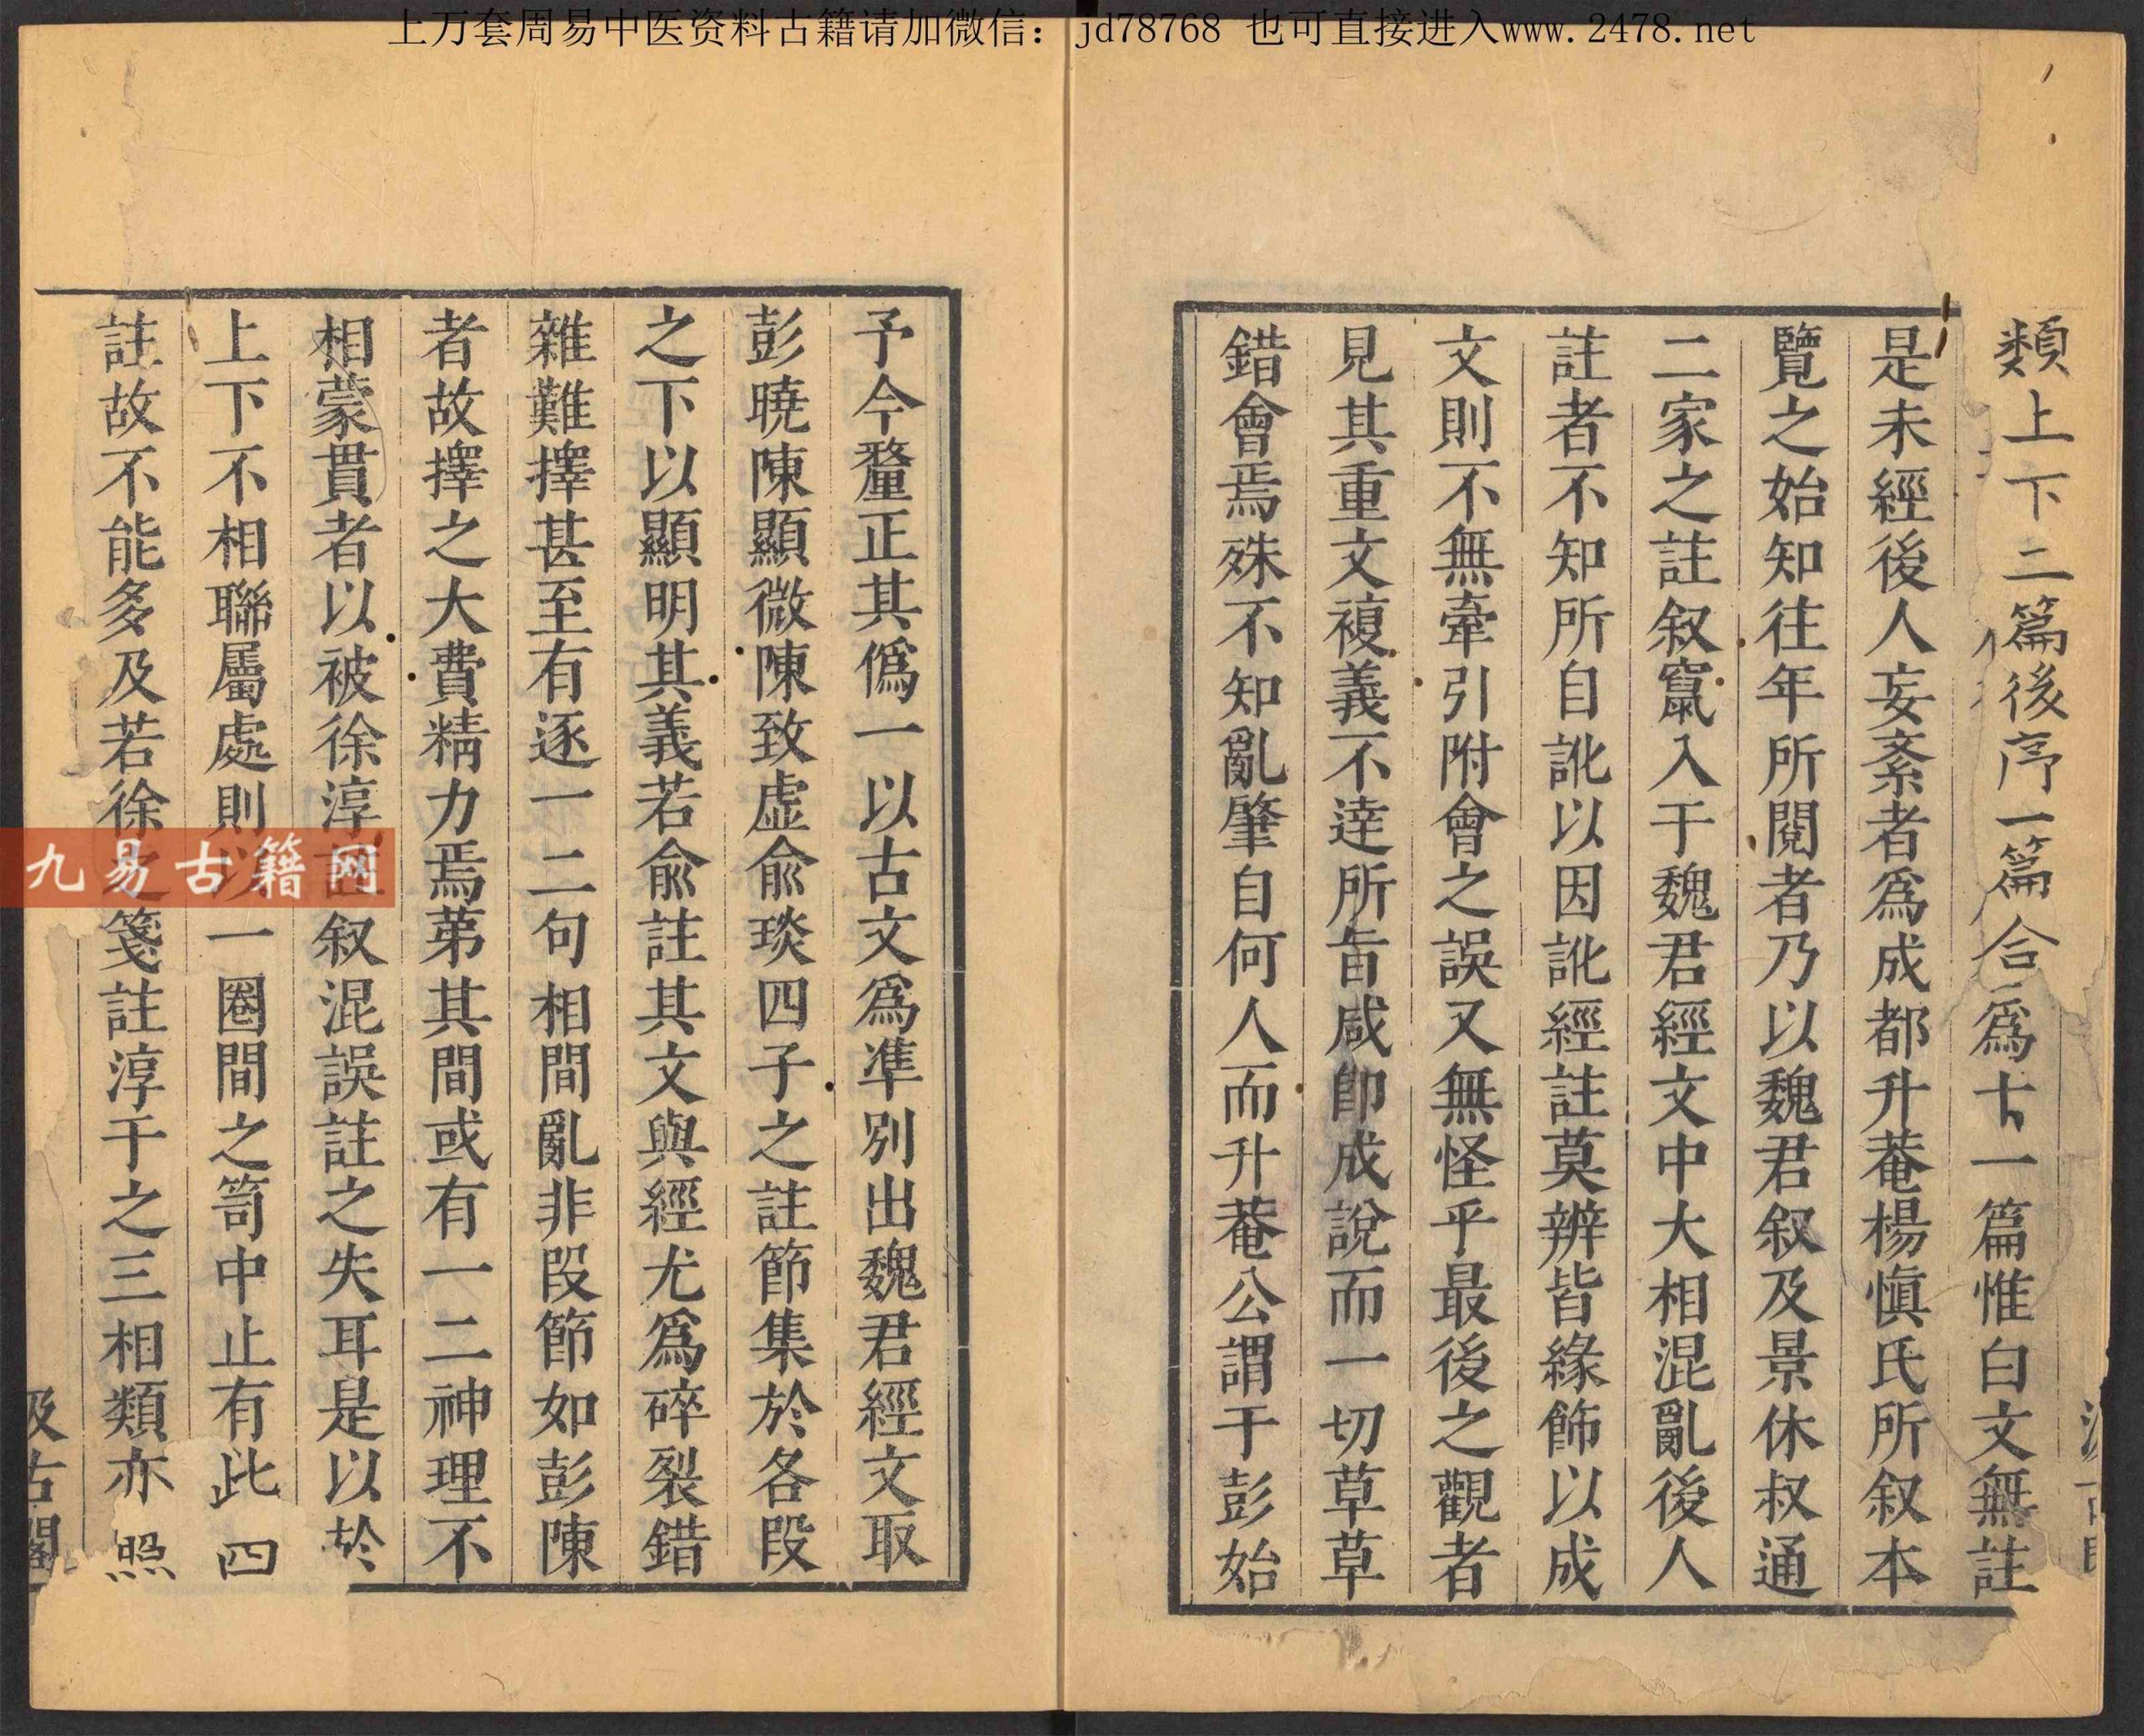 上万套周易中医资料古籍请加微信：jd78768 也可直接进入www.2478.net
類上下二篇後序一篇合爲十一篇惟白文無註
是未經後人妄紊者爲成都升菴楊愼氏所叙本
覽之始知往年所閱者乃以魏君叙及景休叔通
二家之註叙竄入于魏君經文中大相混亂後人
註者不知所自訛以因訛經註莫辨皆緣飾以成
文則不無牽引附會之誤又無怪乎最後之觀者
見其重文複義不逹所旨咸卽成說而一切草草
錯會焉殊不知亂肇自何人而升菴公謂于彭始
予今釐正其僞一以古文爲準別出魏君經文取
彭曉陳顯微陳致虛兪琰四子之註節集於各段
之下以顯明其義若兪註其文與經尤爲碎裂錯
雜難擇甚至有逐一二句相間亂非段節如彭陳
者故擇之大費精力焉苐其間或有一二神理不
相蒙貫者以被徐淳註叙混誤註之失耳是以於
上下不相聯屬處則以一圈間之笥中止有此四
註故不能多及若徐之箋註淳于之三相類亦照
汲古閣
九易古籍网